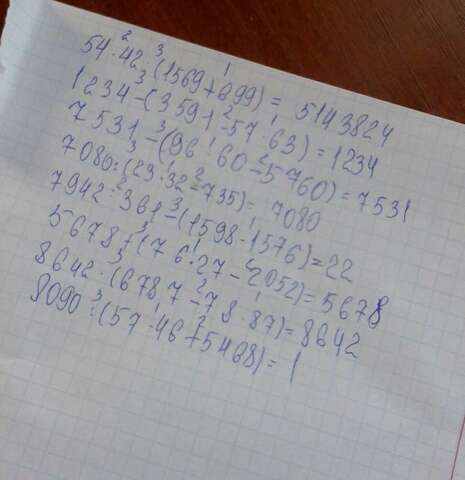 54 ²· 42 ³· (1569 ¹+ 699) = 5143824
1234 ³- (3591 ²- 57 ¹· 63) = 1234
7531 ³- (96 ¹· 60 ²- 5760) = 7531
7080 ³: (23 ¹· 32 ²- 735) = 7080
7942 ²: 361 ³- (1598 ¹- 1576) = 22
5678 ³+ (76 ¹· 27 ²- 2052) = 5678
8642 ³· (6787 ²- 78 ¹· 87) = 8642
8090 ³: (57 ¹· 46 ²+ 5468) = 1